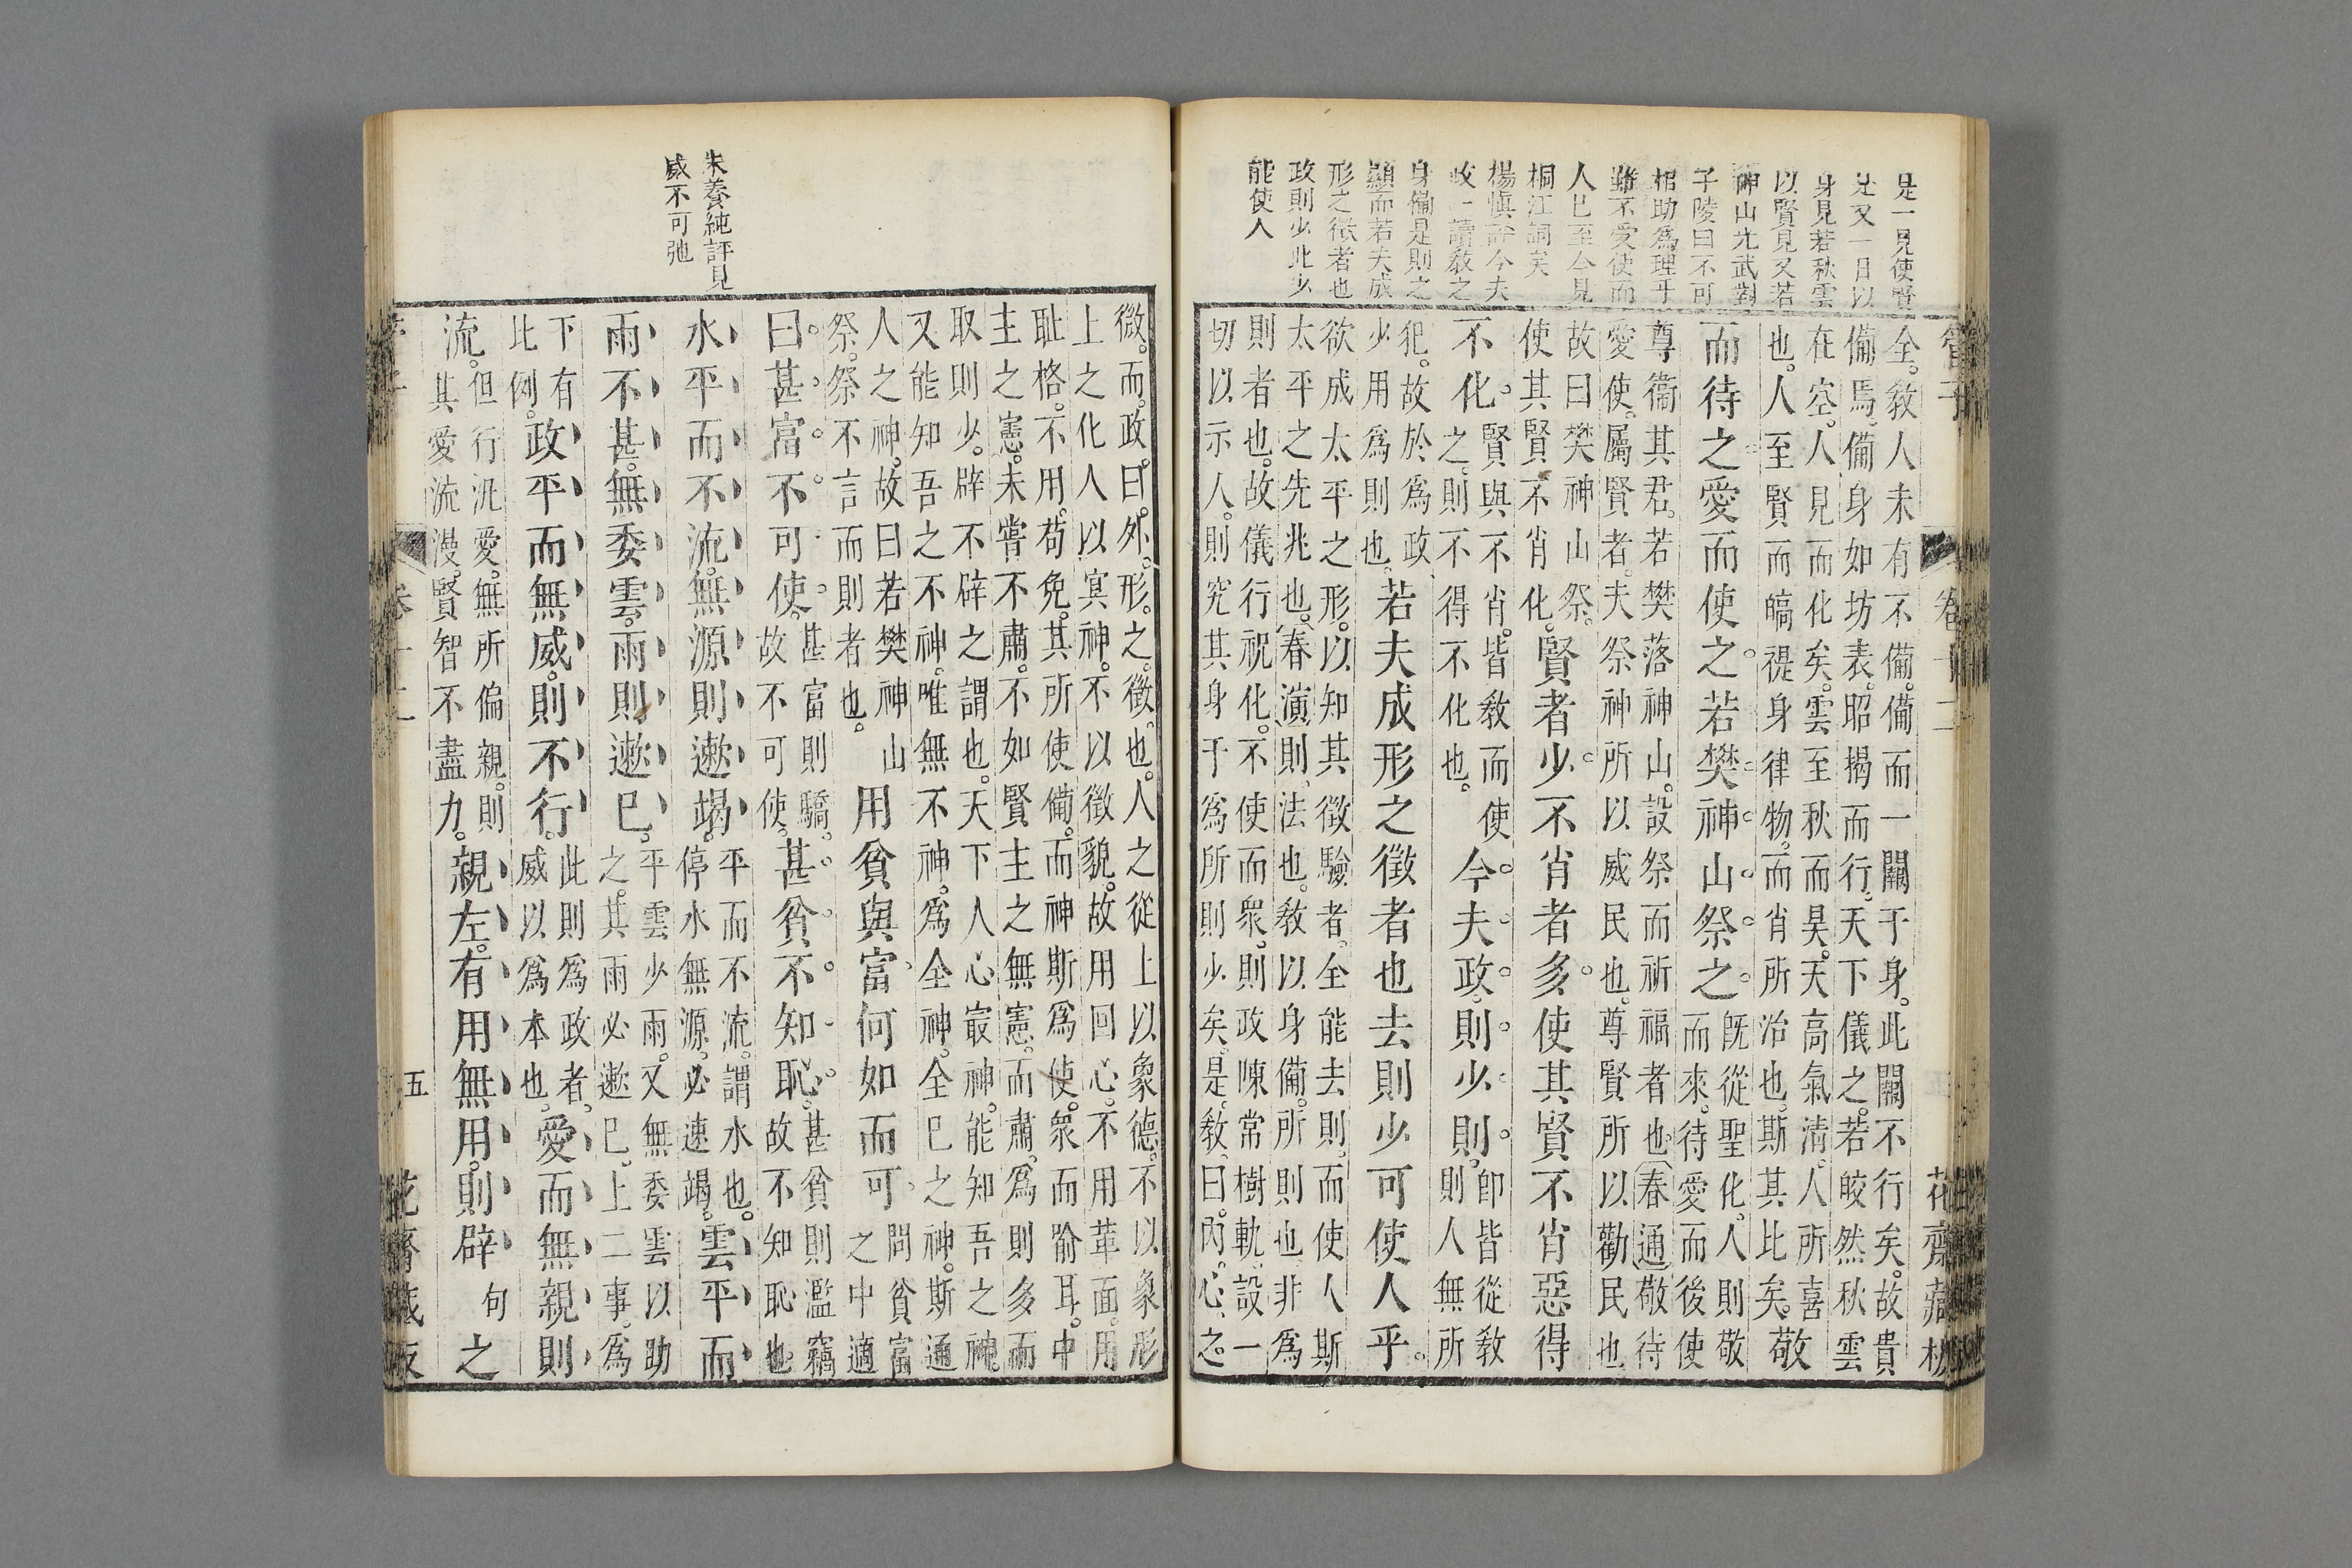 是一見使賢
見又一日以
身見若秋雲
以賢見又若
神山光武對
子陵曰不可
相助為理乎
雖不受使而
人已至今見
桐江祠矣
楊慎評今夫
政一讀教之
身備是則之
顯而若夫成
形之徵者也
政則少此少
能使人
管子
卷十二
花齋藏板
全。教人未有不備。備而一關于身。此關不行矣。故貴
備焉。備身如坊表。昭揭而行。天下儀之。若皎然秋雲
在空。人見而化矣。雲至秋而昊。天高氣清。人所喜
也。人至賢而皜禔身律物。而肖所治也。斯其比矣。敬
而待之愛而使之若樊神山祭之
既從聖化。人則敬
而來。待愛而後使
尊衞其君。若樊落神山。設祭而祈福者也。春通敬待
愛使。屬賢者。夫祭神所以威民也。尊賢所以勸民也
故曰樊神山祭。
使其賢不肖化。
賢者少不肖者多使其賢不肖惡得
不化。
賢與不肖。皆教而使
之。則不得不化也。
今夫政則少則。
即皆從教
則人無所
犯。故於為政
少用為則也。
若夫成形之徵者也去則少可使人乎
欲成太平之形。以知其徵驗者。全能去則。而使人斯
太平之先兆也。春演則。法也。教以身備。所則也。非為
則者也。故儀行祝化。不使而眾。則政陳常樹軌。設一
切以示人。則究其身于為所則少矣。是教。曰。內。心。之
微。而。政。曰。外。形。之。徵。也。人之從上以象德。不以象形
上之化人以冥神。不以徵貌。故用回心。不用革面。用
恥格。不用苟免。其所使備。而神斯為使。眾而踰耳。中
主之憲。未嘗不肅。不如賢主之無憲。而肅。為則多而
取則少。辟不辟之謂也。天下人心寂神。能知吾之神。
又能知吾之不神。唯無不神。為全神。全已之神。斯通
人之神。故曰若樊神山
祭。祭不言而則者也。
用貧與富何如而可
問貧富
之中適
曰甚富不可使。
甚富則驕。
故不可使。
甚貧不知恥。
甚貧則濫竊
故不知恥也。
水平而不流。無源則遬竭。
平而不流。謂水也。
停水無源。必速竭。
雲平而
雨不甚。無委雲。雨則遬已。
平雲少雨。又無委雲以助
之。其雨必遬已。上二事。為
下有
此例。
政平而無威。則不行。
此則為政者。
威以為本也。
愛而無親則
流。
但行汎愛。無所偏親。則
其愛流漫。賢智不盡力。
親左。有用無用。則辟
句
之
朱養純評見
威不可弛
卷十二
五
花齋藏板